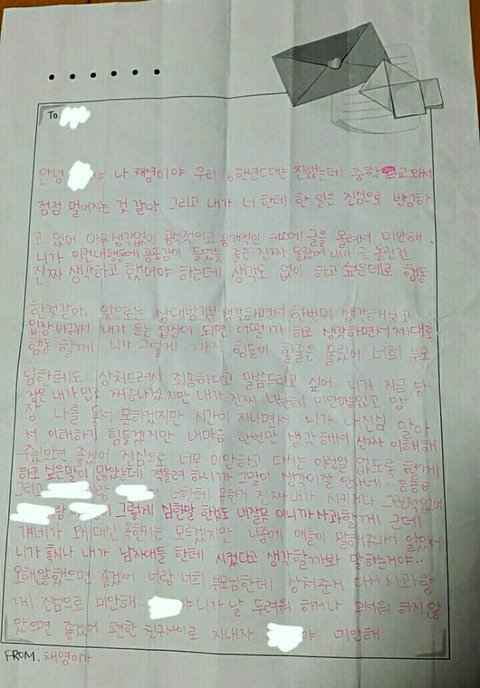 To.
안녕 야 나 채영이야 우리 6학년때는 친했는데 중학교와서
점점 멀어지는 것 같아. 그리고 내가 너 한테 한 일은 진심으로 반성하
고 있어 아무생각없이 공적이고 공개적인 카스에 글을 올려서 미안해.
니가 이런내행동에 공포감이 들었을 줄은 진짜 몰랐어 내가 글 올린건
진짜 생각하고 했어야 하는데 생각도 없이 하고 싶은데로 행동
한것같아. 앞으로는 상대방기분 생각하면서 한번더 생각해보고
입장 바꿔서 내가 듣는 입장이 되면 어떨까 하고 생각하면서 제대로
행동 할게 니가 그렇게 까지 힘들어 할줄은 몰랐어 너희 부모
님한테도 상처드려서 죄송하다고 말씀드리고 싶어. 니가 지금 당
장은 내가 밉고 짜증나겠지만 내가 진짜 너한테 미안해하고 있고 당
장 나를 용서 못하겠지만 시간이 지나면서 니가 내진심 알아
서 이해하기 힘들겠지만 내마음 한번만 생각해서 진짜 이해해
주었으면 좋겠어 진심으로 너무 미안하고 다시는 이런일 없도록 할게
하고 싶은말이 많았는데 적을려 하니가 그말이 생각이잘 안나네..ㅎㅎ
그리고 너한테 욕한거 진짜내가 시키거나 그런적없어
랑 이 그렇게 심한말 한것도 내잘못 이니까 사과할게 근데
걔네가 왜 대신 욕한지는 모르겠지만 나중에 애들이 말해줘서 알았어
니가 혹시나 내가 남자애들 한테 시켰다고 생각할까봐 말하는거야..
오해안했으면 좋겠어 너랑 너희 부모님한테 상처준거 다시 사과할
게 진심으로 미안해.. 야 니가 날 두려워 하거나 무서워 하지 않
았으면 좋겠어 편한 친구사이로 지내자. 야 미안해
FROM. 채영이가